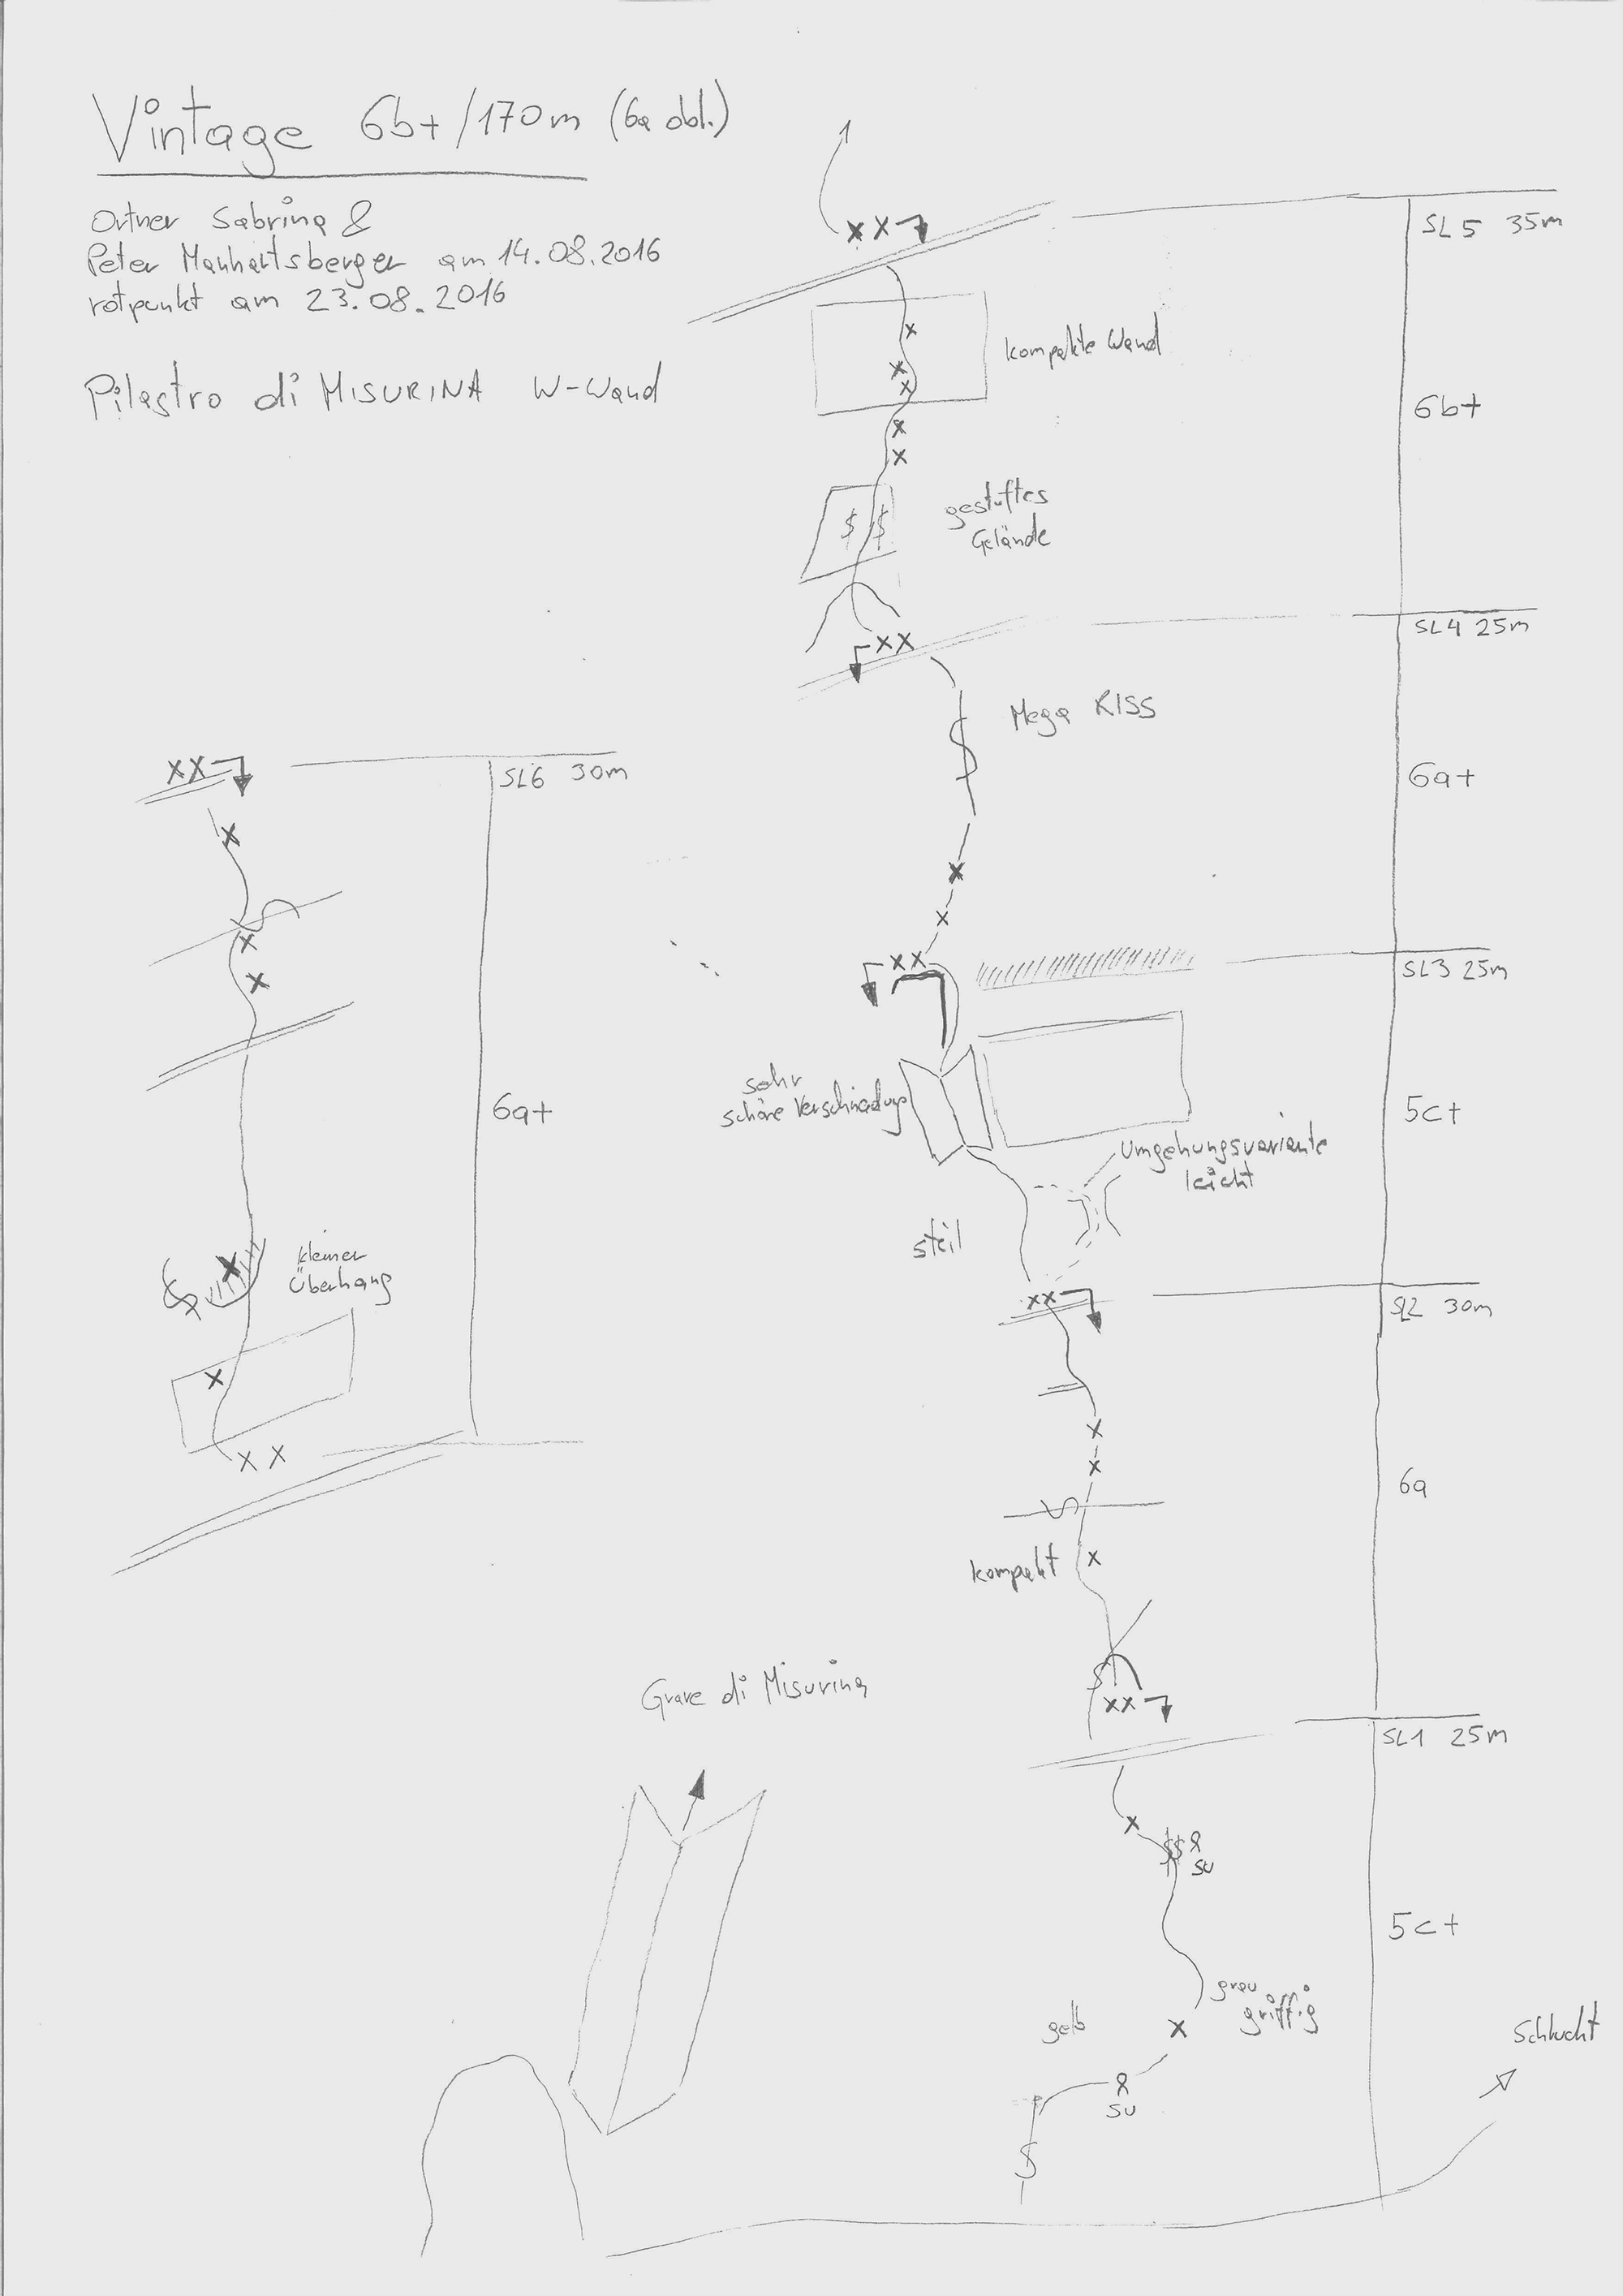 Vintage 6b+/170m (6a obl.)
Ortner Sabrina &
Peter Manhartsberger am 14.08.2016
rotpunkt am 23.08.2016
Pilastro di MISURINA W-Wand
SL5 35m
kompakte Wand
6b+
gestuftes
Gelände
SL4 25m
Mega RISS
6a+
SL3 25m
sehr
schöne Verschneidung
5c+
Umgehungsvariante
leicht
steil
SL2 30m
6a
kompakt
SL1 25m
SU
5c+
grau
griffig
gelb
SU
Schlucht
SL6 30m
6a+
kleiner
Überhang
Grave di Misurina